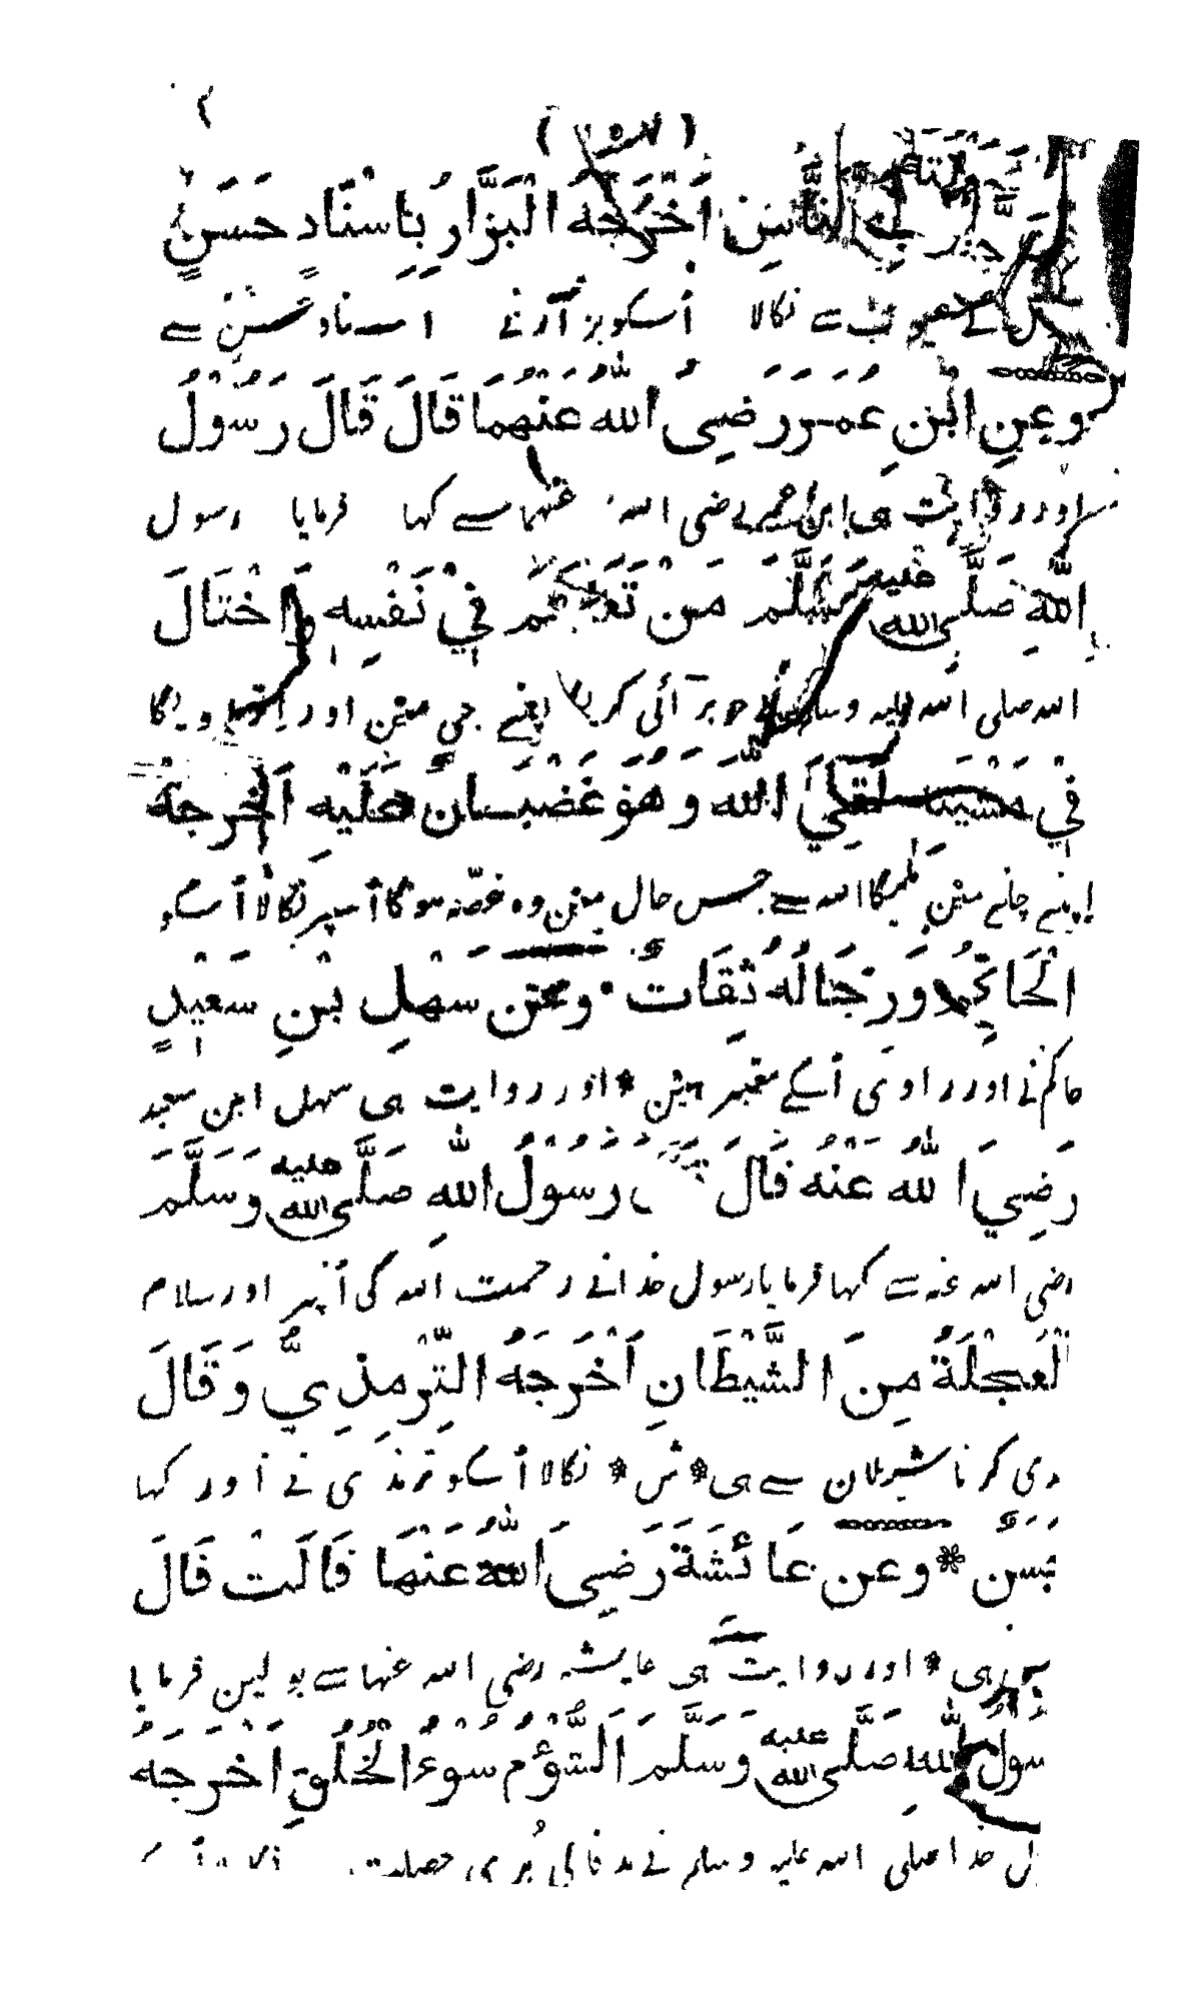 النَّاسِ أَخْرَجَهُ الْبَزَّارُ بِاِسْنَادٍ حَسَنٍ
سے نکالا اُسکو بزّار نے اسناد حسن سے
وعنِ ابْنِ عُمَرَ رَضِیَ اللّٰهُ عَنْهُمَا قَالَ قَالَ رَسُوْلُ
اور روایت ہی ابن عمر رضی اللہ عنہما سے کہا فرمایا رسول
اللّٰهِ صَلَّی اللّٰه علیه وَسَلَّمَ مَنْ تَعَظَّمَ فِيْ نَفْسِهِ وَاخْتَالَ
اللہ صلی اللہ علیہ وسلم نے جو بڑائی کرے اپنے جی مین اور
فِيْ مِشْيَتِهِ لَقِيَ اللّٰهَ وَهُوَ غَضْبَانُ عَلَيْهِ اَخْرَجَهُ
اپنے چلنے مین ملیگا اللہ سے جس حال مین وہ غصّہ ہوگا اُسپر نکالا اُسکو
الْحَاكِمُ وَرِجَالُهُ ثِقَاتٌ * وعن سَهْلِ بْنِ سَعِيْدٍ
حاکم نے اور راوی اُسکے معتبر ہین * اور روایت ہی سہل ابن سعید
رَضِيَ اللّٰهُ عَنْهُ قَالَ رَسُوْلُ اللّٰهِ صَلَّی اللّٰه علیه وَسَلَّمَ
رضی اللہ عنہ سے کہا فرمایا رسول خدا نے رحمت اللہ کی اُنپر اور سلام
لْعَجْلَةُ مِنَ الشَّيْطَانِ اَخْرَجَهُ التِّرْمِذِيُّ وَقَالَ
دی کرنا شیطان سے ہی * ش * نکالا اُسکو ترمذی نے اور کہا
حَسَنٌ * وعن عَائِشَةَ رَضِيَ اللّٰهُ عَنْهَا قَالَتْ قَالَ
ہی * اور روایت ہی عایشہ رضی اللہ عنہا سے بولین فرمایا
سُوْلُ اللّٰهِ صَلَّی اللّٰه علیه وَسَلَّمَ اَلشُّؤْمُ سُوْءُ الْخُلُقِ اَخْرَجَهُ
ل خدا صلی اللہ علیہ وسلم نے بدفالی بُری خصلت